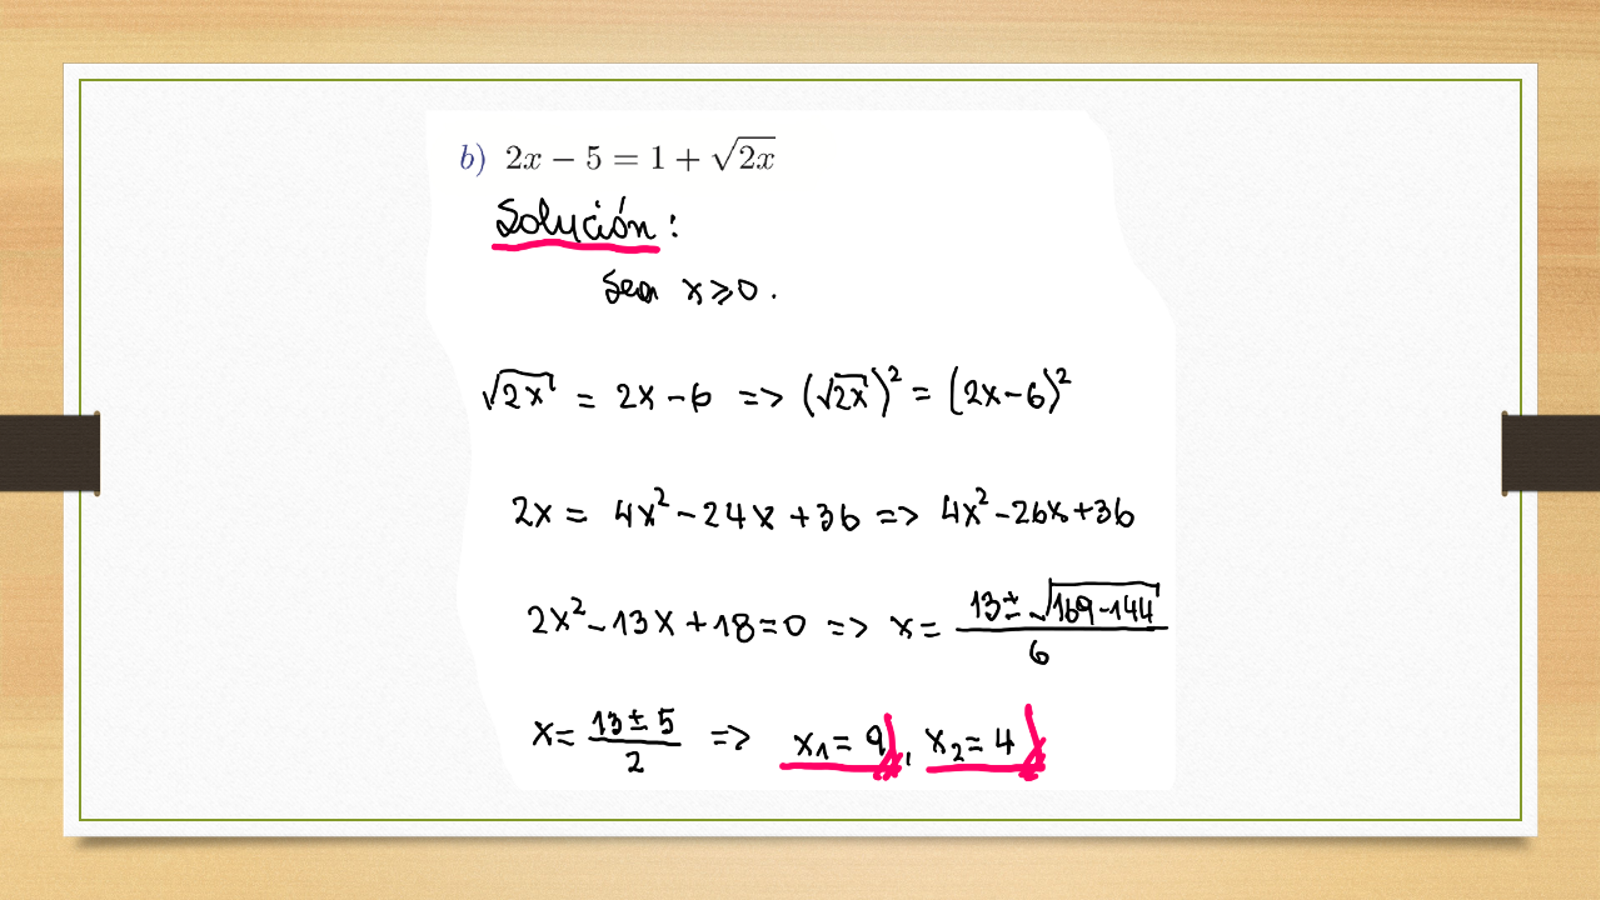 b) 2x − 5 = 1 + √2x
Solución:
Sea x ≥ 0.
√2x = 2x − 6 => (√2x)² = (2x − 6)²
2x = 4x² − 24x + 36 => 4x² − 26x + 36
2x² − 13x + 18 = 0 => x = (13 ± √169 − 144) / 6
x = (13 ± 5) / 2 => x₁ = 9, x₂ = 4